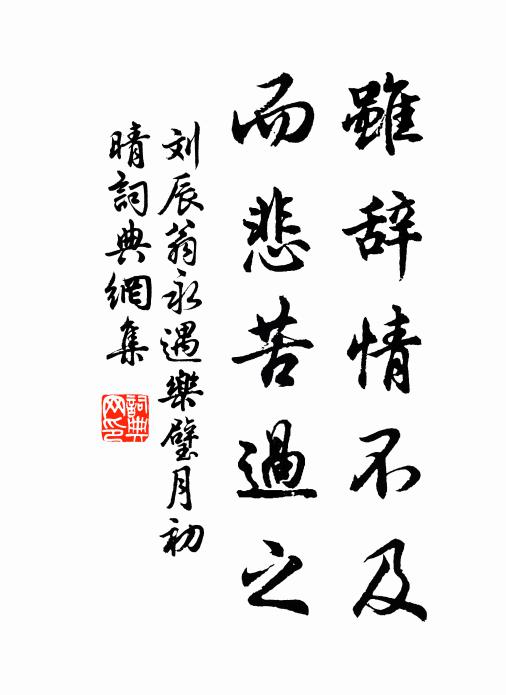 雖辞情不及
而悲苦過之
刘辰翁永遇樂璧月初
晴詞典網集
詞典
网印